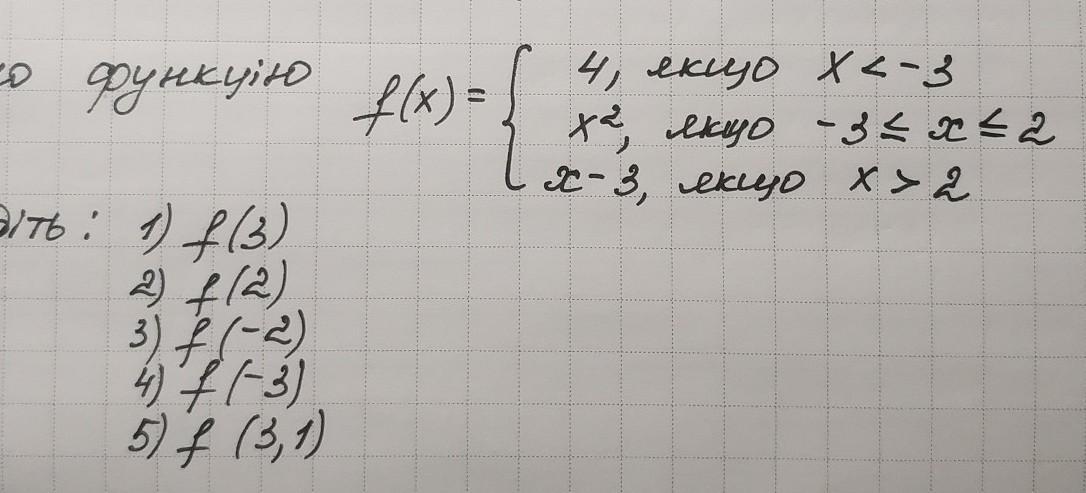 функцію f(x) = { 4, якщо x < -3
x², якщо -3 ≤ x ≤ 2
x - 3, якщо x > 2
1) f(3)
2) f(2)
3) f(-2)
4) f(-3)
5) f (3,1)